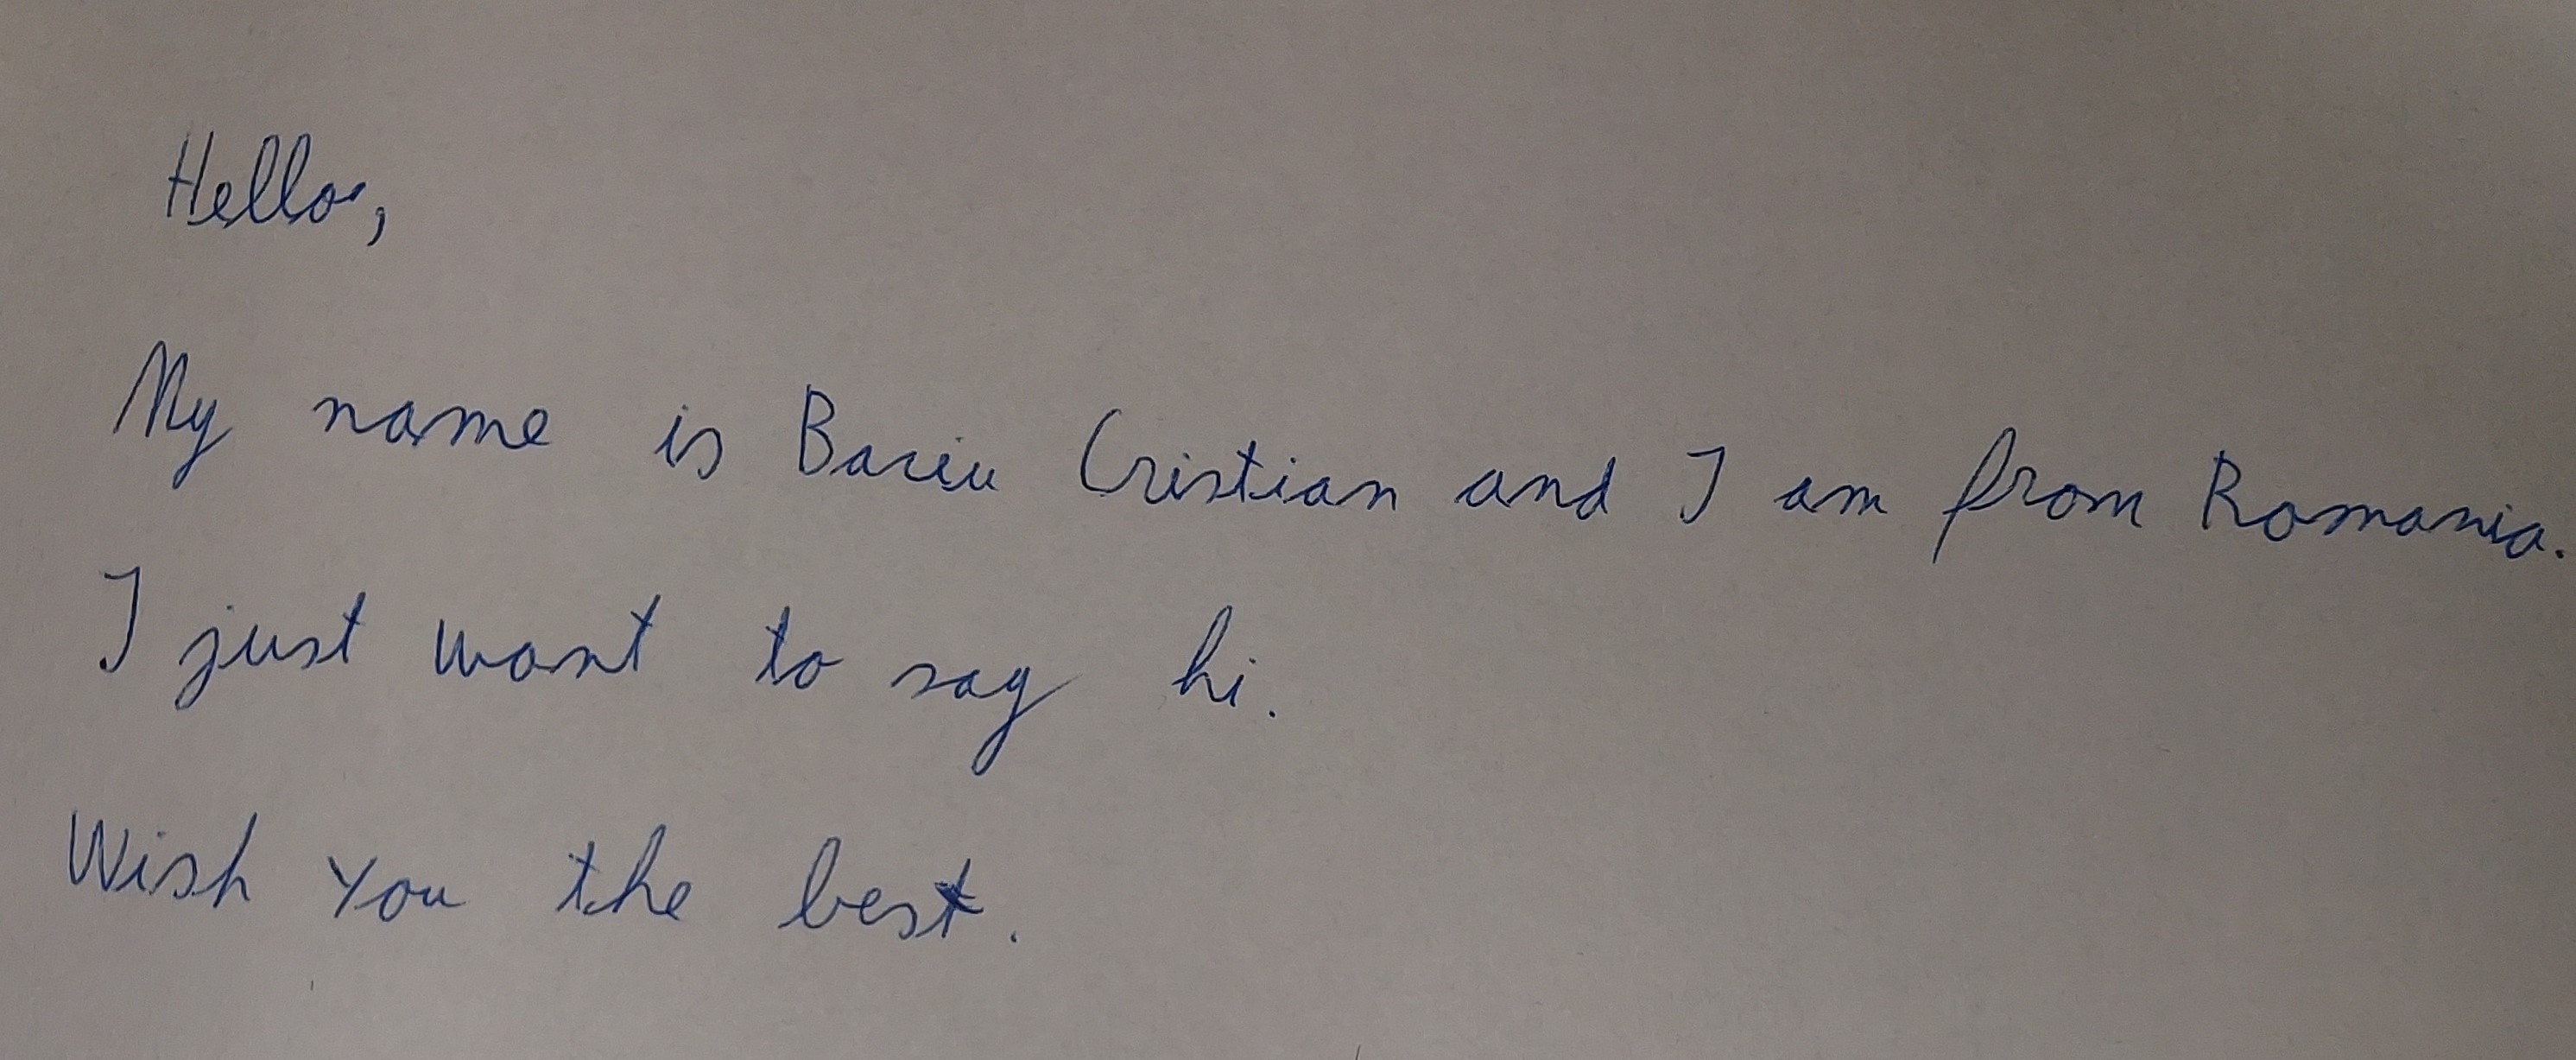 Hello,
My name is Baciu Cristian and I am from Romania.
I just want to say hi.
Wish You the best.